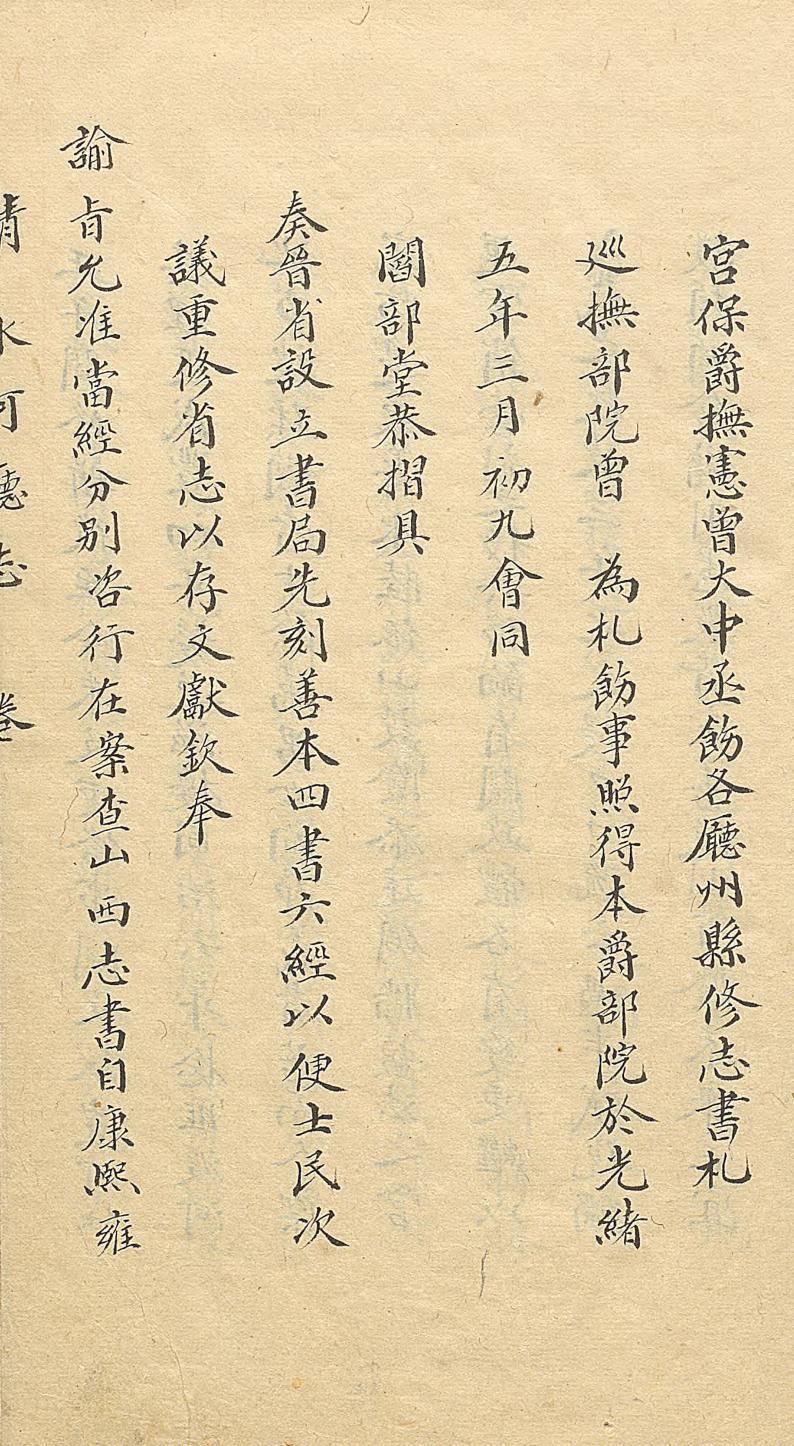 宮保爵撫憲曾大中丞飭各廳州縣修志書札
廵撫部院曾　為札飭事照得本爵部院於光緒
五年三月初九會同
閻部堂恭摺具
奏晉省設立書局先刻善本四書六經以便士民次
議重修省志以存文獻欽奉
諭旨允准當經分別咨行在案查山西志書自康熙雍
清水河廳志　卷